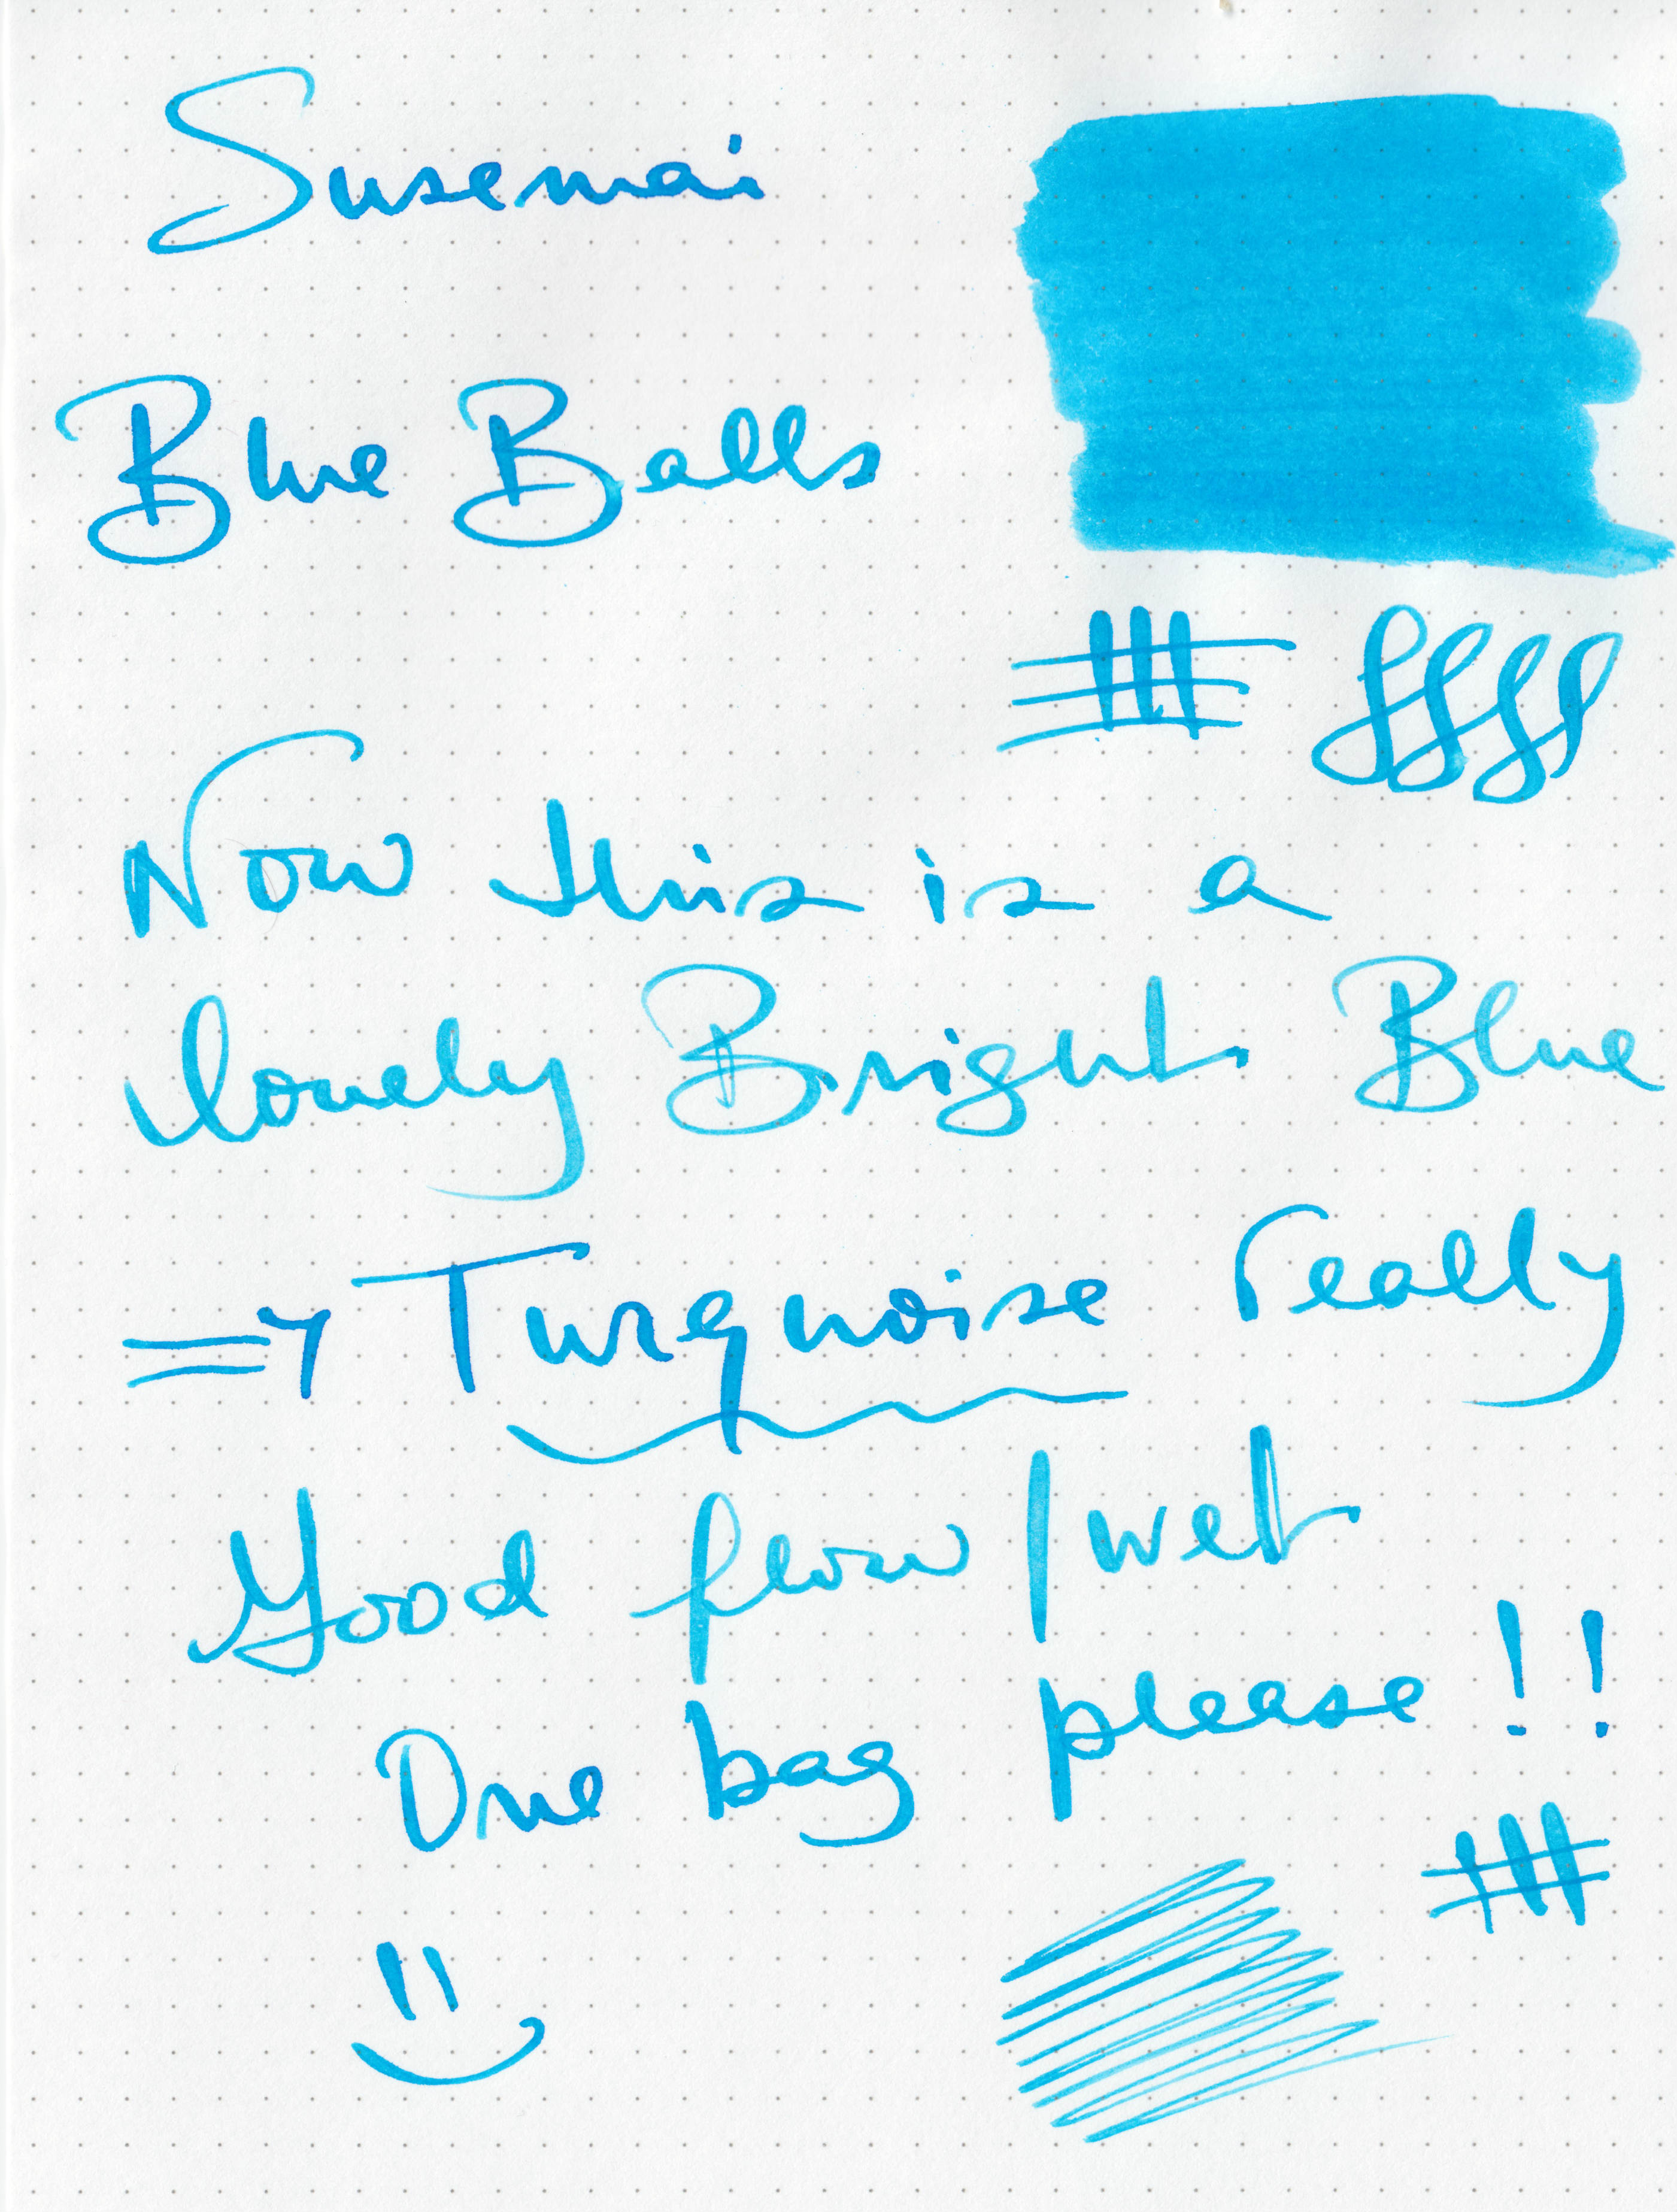 Susemai
Blue Balls
Now this is a
lovely Bright Blue
=> Turquoise really
Good flow / wet
One bag please!!